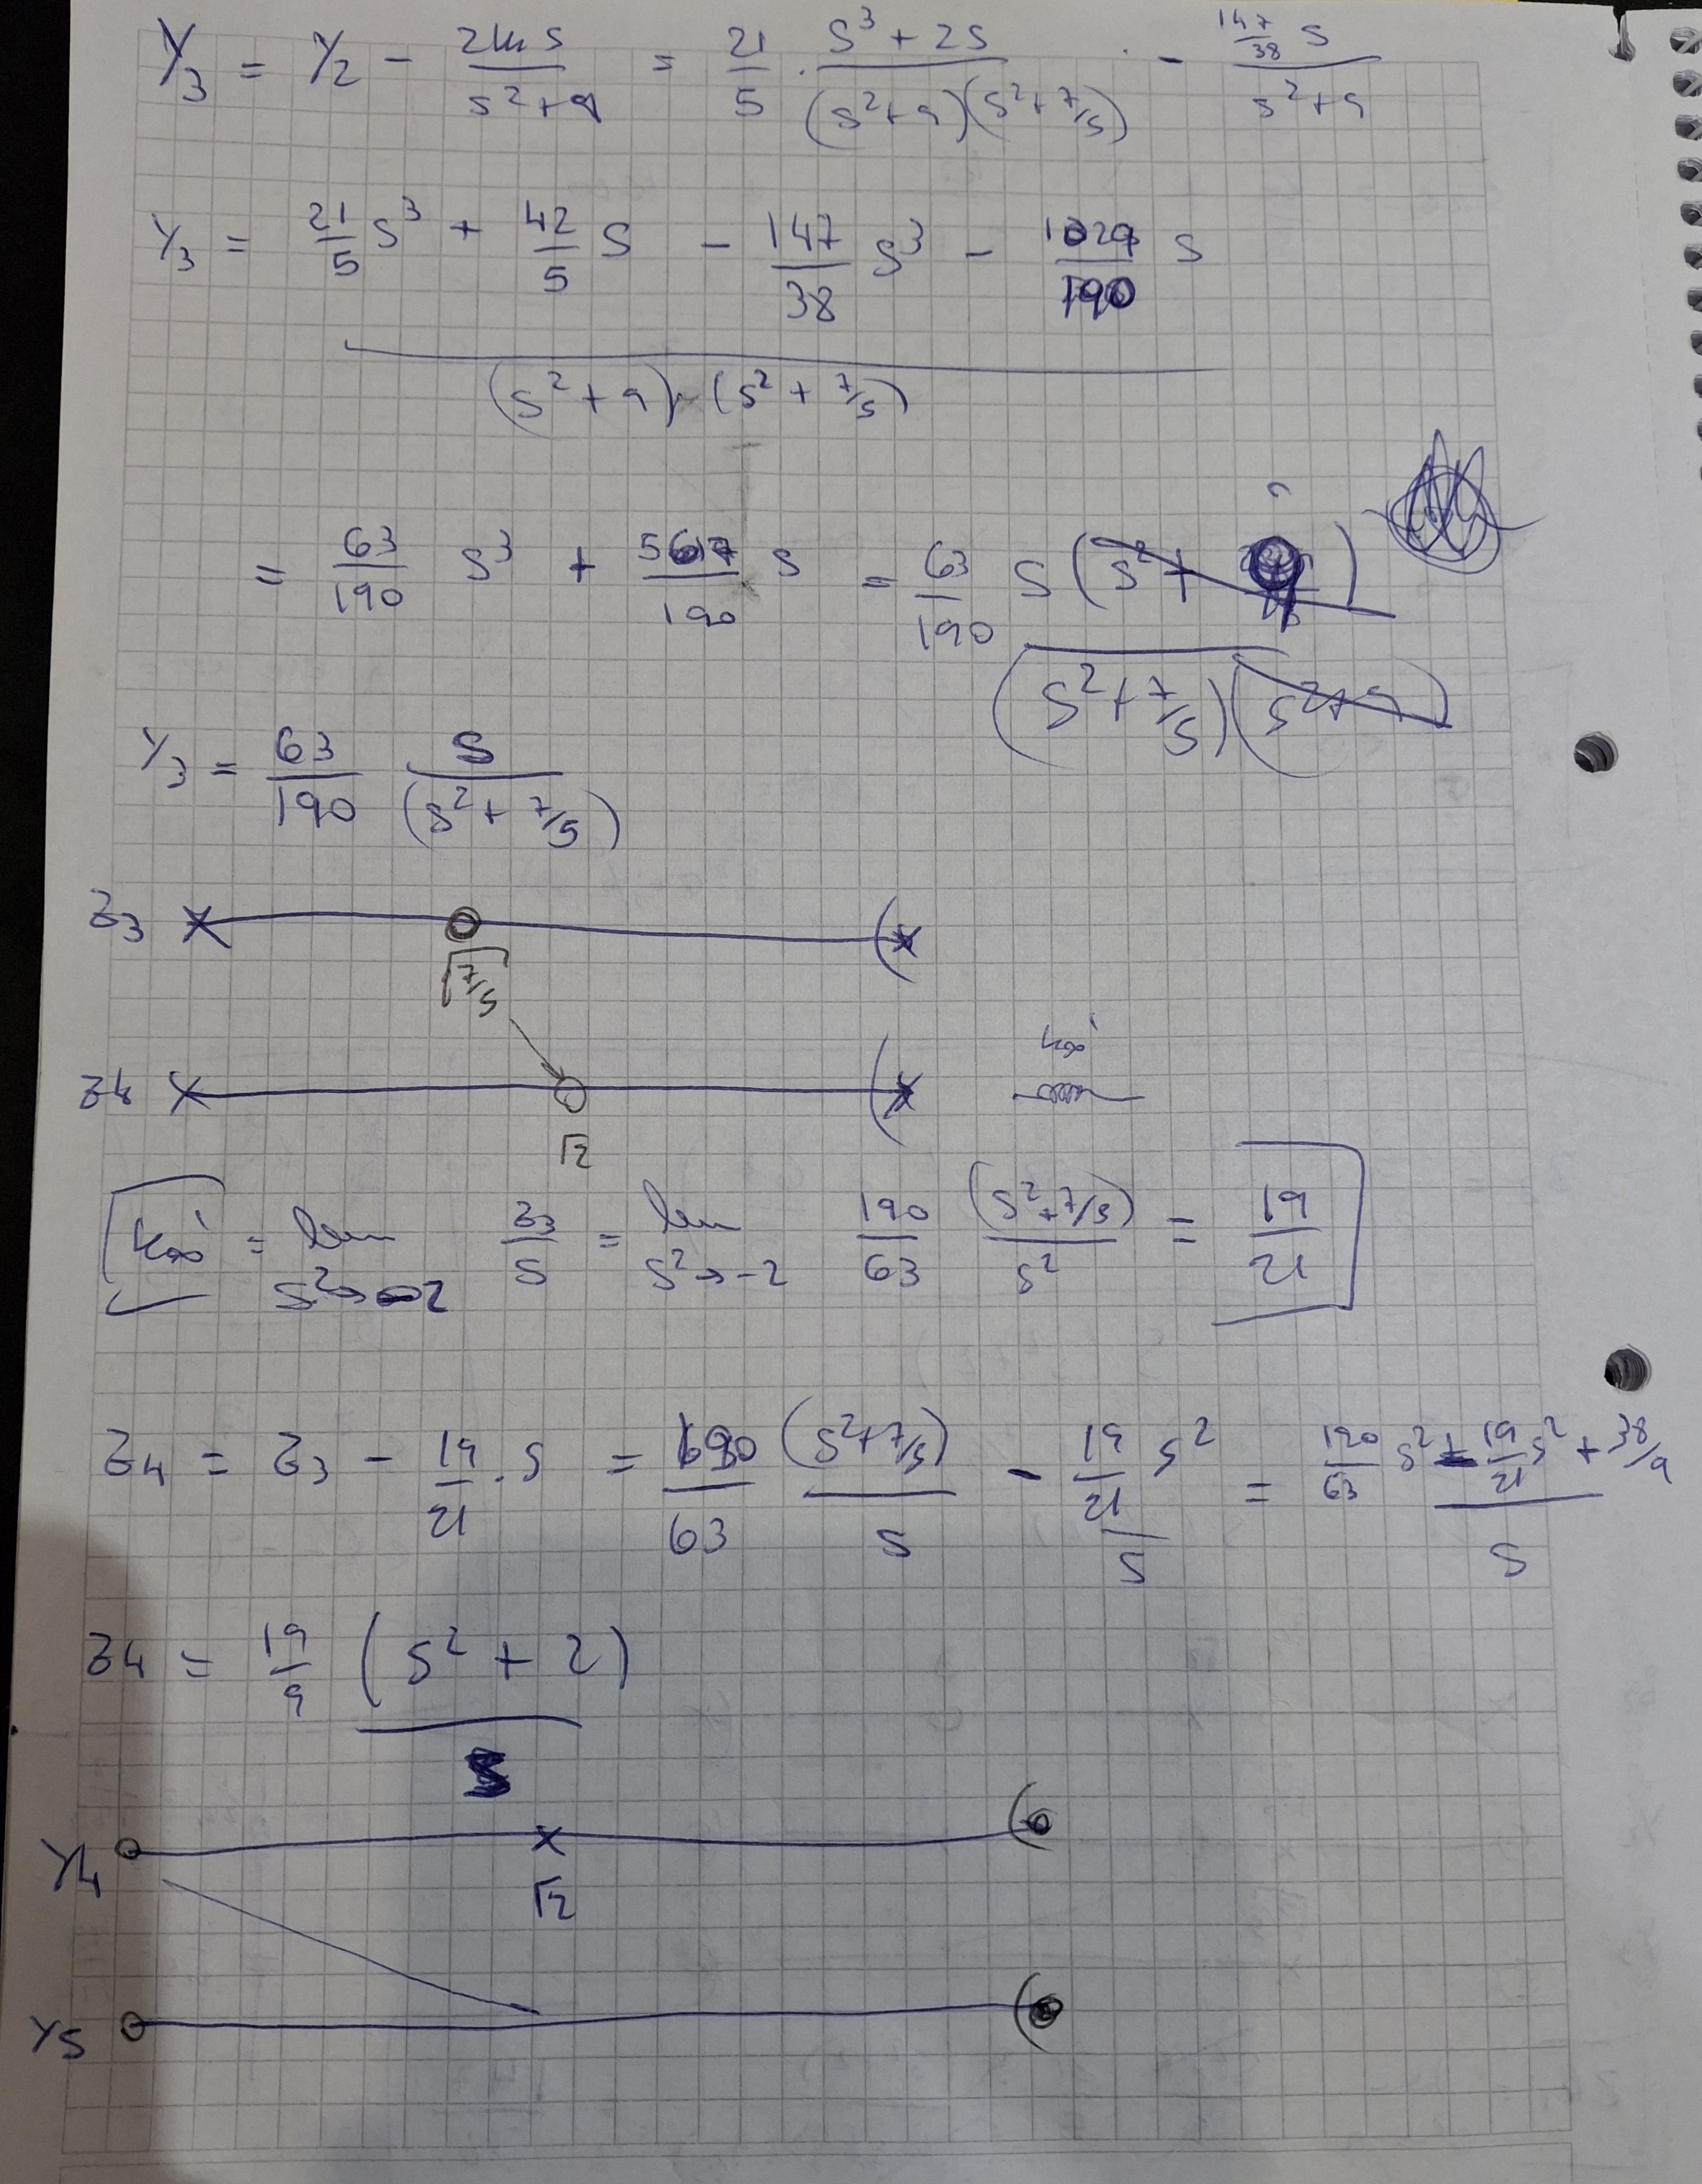 Y3 = Y2 - 2k1 s / (s²+9) = 21/5 · (s³+2s) / ((s²+9)(s²+7/5)) - (147/38 s) / (s²+9)
Y3 = (21/5 s³ + 42/5 s - 147/38 s³ - 1029/190 s) / ((s²+9)·(s²+7/5))
= 63/190 s³ + 567/190 s = 63/190 s (s²+ ) / ((s²+7/5)(s²+9))
Y3 = 63/190 s / (s²+7/5)
Z3
√7/5
Z4 k∞'
√2
k∞' = lim s²→-2 Z3/s = lim s²→-2 190/63 (s²+7/5)/s² = 19/21
Z4 = Z3 - 19/21 · s = 190/63 (s²+7/5)/s - (19/21 s²)/s = (190/63 s² - 19/21 s² + 38/9)/s
Z4 = 19/9 (s²+2)/s
Y4
√2
Y5